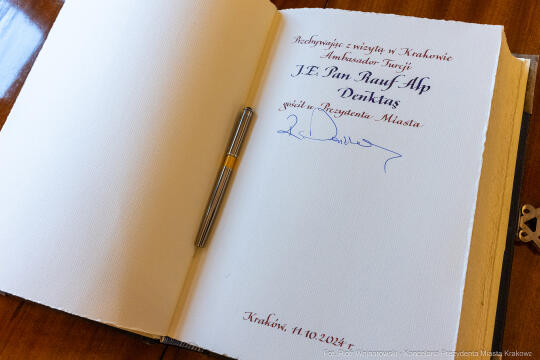 Przebywając z wizytą w Krakowie
Ambasador Turcji
J.E. Pan Rauf Alp
Denktaş
gościł u Prezydenta Miasta
Kraków, 11.10.2024 r.
Fot. Piotr Wojnarowski - Kancelaria Prezydenta Miasta Krakowa